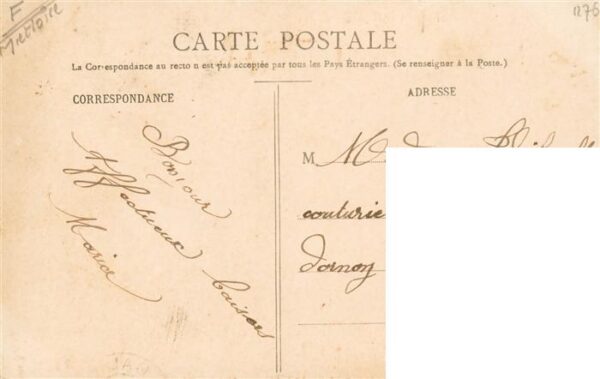 F
1276
CARTE POSTALE
La Correspondance au recto n est pas acceptée par tous les Pays Étrangers. (Se renseigner à la Poste.)
CORRESPONDANCE
ADRESSE
Bonjour
Affectueux baisers
Maria
M
couturie
dornoy